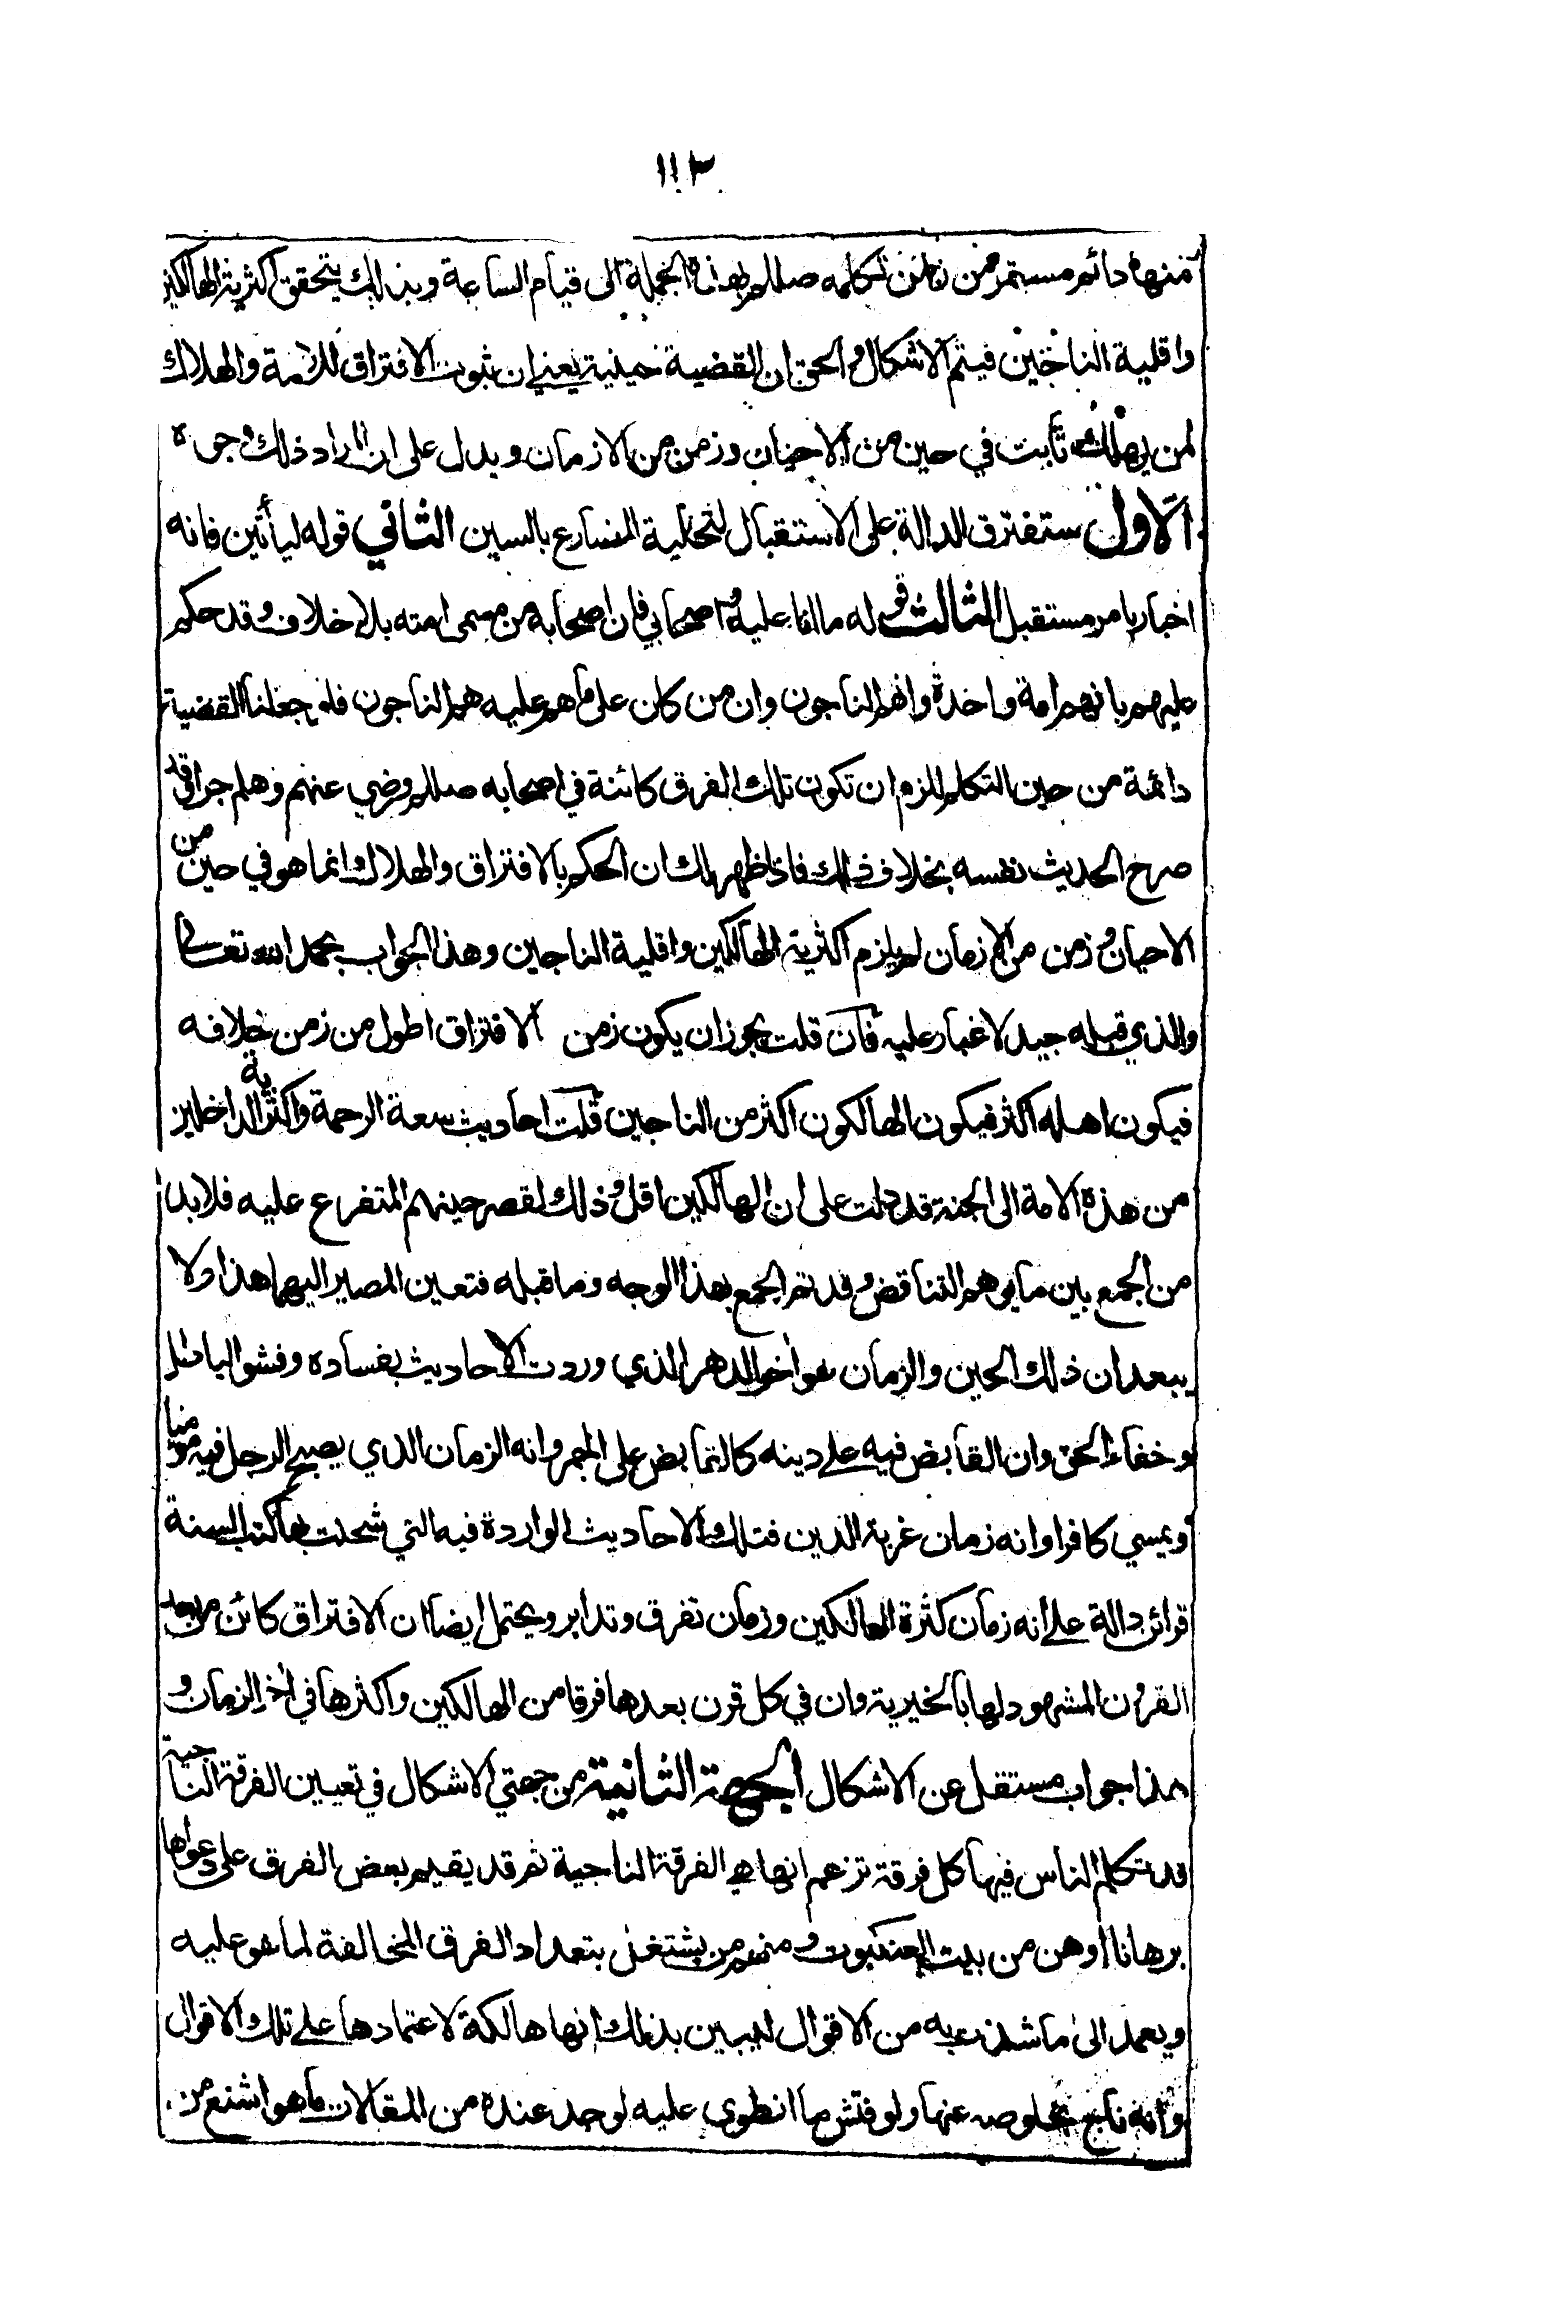 ١١٣
منها دائم مستمر من زمن تكلمه صللم بهذه الجملة الى قيام الساعة وبذلك يتحقق اكثرية الهالكين
واقلية الناجين فيتم الاشكال والحق ان القضية حينية يعني ان ثبوت الافتراق للامة والهلاك
لمن يهلك ثابت في حين من الاحيان وزمن من الازمان ويدل على ان المراد ذلك وجوه
الاول ستفترق الدالة على الاستقبال لتحلية المضارع بالسين الثاني قوله ليأتين فانه
اخبار بامر مستقبل الثالث قوله ما انا عليه واصحابي فان اصحابه من مسمى امته بلا خلاف وقد حكم
عليهم بانهم امة واحدة وانهم الناجون وان من كان على ما هم عليه هم الناجون فلو جعلنا القضية
دائمة من حين التكلم للزم ان تكون تلك الفرق كائنة في اصحابه صللم ورضي عنهم وهلم جرا وقد
صرح الحديث نفسه بخلاف ذلك فاذا ظهر لك ان الحكم بالافتراق والهلاك انما هو في حين من
الاحيان وزمن من الازمان لم يلزم اكثرية الهالكين واقلية الناجين وهذا الجواب بحمد الله تعالى
والذي قبله جيد لا غبار عليه فان قلت يجوز ان يكون زمن الافتراق اطول من زمن خلافه
فيكون اهله اكثر فيكون الهالكون اكثر من الناجين قلت احاديث سعة الرحمة واكثرية الداخلين
من هذه الامة الى الجنة قد دلت على ان الهالكين اقل وذلك لقصر حينهم المتفرع عليه فلا بد
من الجمع بين ما يوهم التناقض وقد تم الجمع بهذا الوجه وما قبله فتعين المصير اليهما هذا ولا
يبعد ان ذلك الحين والزمان هو اخر الدهر الذي وردت الاحاديث بفساده وفشو الباطل
وخفاء الحق وان القابض فيه على دينه كالقابض على الجمر وانه الزمان الذي يصبح الرجل فيه مؤمنا
ويمسي كافرا وانه زمان غربة الدين فتلك الاحاديث الواردة فيه التي شحنت بها كتب السنة
قرائن دالة على انه زمان كثرة الهالكين وزمان تفرق وتدابر ويحتمل ايضا ان الافتراق كائن من بعد
القرون المشهود لها بالخيرية وان في كل قرن بعدها فرقا من الهالكين واكثرها في آخر الزمان و
هذا جواب مستقل عن الاشكال الجهة الثانية من جهتي الاشكال في تعيين الفرقة الناجية
قد تكلم الناس فيها كل فرقة تزعم انها هي الفرقة الناجية ثم قد يقيم بعض الفرق على دعواها
برهانا اوهن من بيت العنكبوت ومنهم من يشتغل بتعداد الفرق المخالفة لما هو عليه
ويعمد الى ما شذت به من الاقوال ليبين بذلك انها هالكة لاعتمادها على تلك الاقوال
وانه ناج بخلوصه عنها ولو فتش ما انطوى عليه لوجد عنده من المقالات ما هو اشنع من